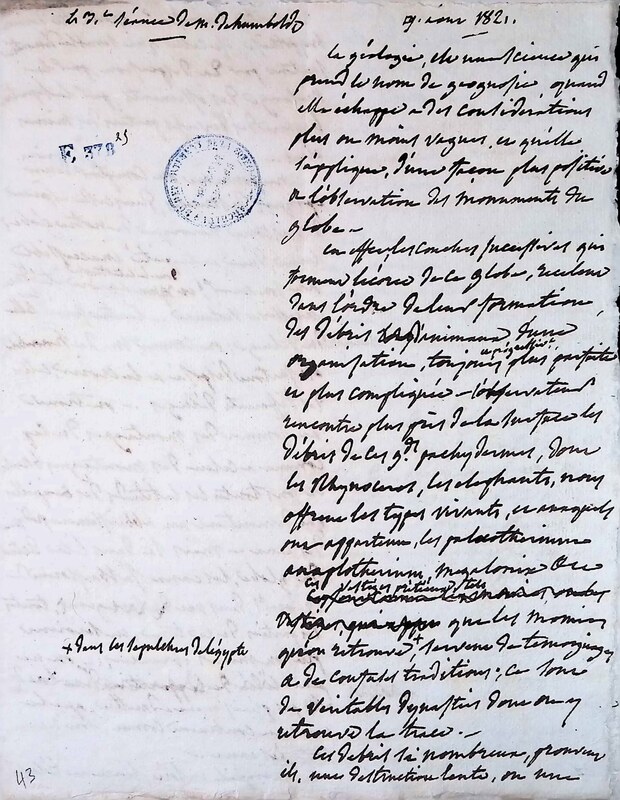 La 3.e séance de M. de humboldt 9. aout 1821.
la géologie, est une science qui
prend le nom de geognosie, quand
elle échappe a des considérations
plus ou moins vagues, et qu'elle
s'applique, d'une facon plus positive
a l'observation des monuments du
globe –
en effet les couches successives qui
forment l'écorce de ce globe, recelent
dans l'ordre de leur formation,
des débris d'animaux d'une
organisation, toujours plus parfaite
et plus compliquée – l'observateur
rencontre plus près de la surface les
débris de ces gds pachydermes, dont
les rhynoceros, les elephants, nous
offrent les types vivants, et auxquels
ont appartenu, les palaeotherium
anaplotherium, megalonix &c
ces vestiges pétrifiés, tels
que les momies
qu'on retrouve + servent de temoignages
a de confuses traditions; ce sont
de véritables dynasties dont on y
retrouve la trace. –
+ dans les sepulchres de l'égypte
Ces debris si nombreux, prouvent
ils, une destruction lente, ou une
E. 378 25
43